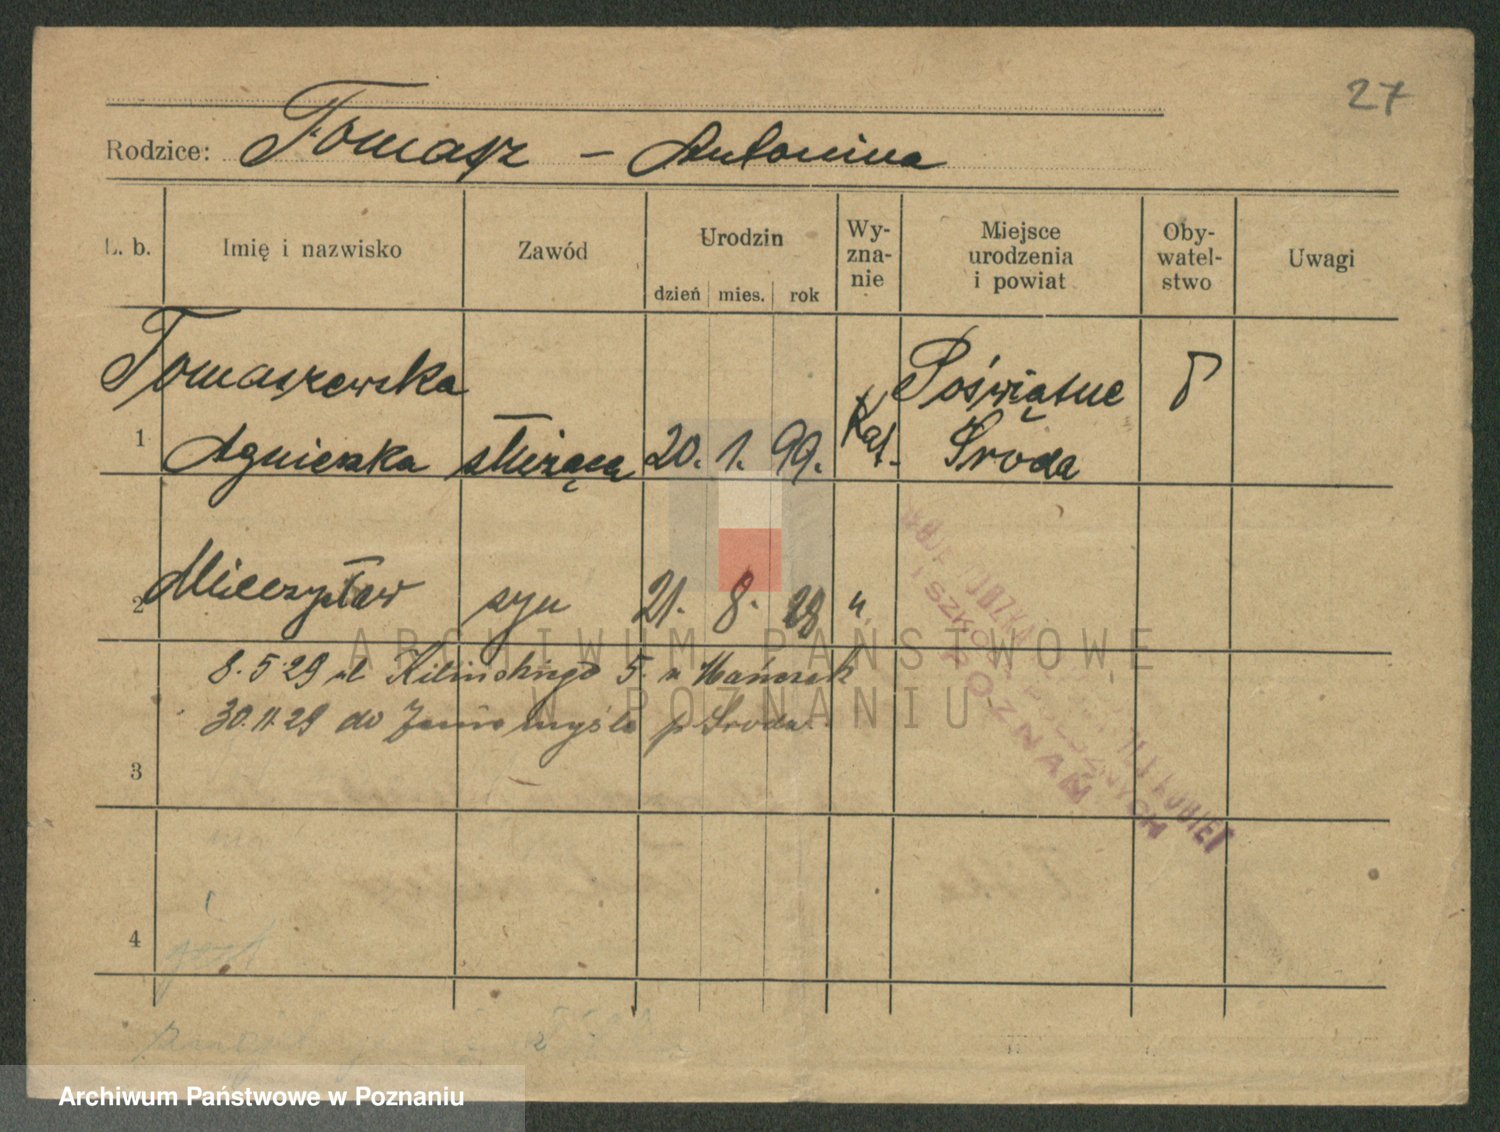 27
Rodzice: Tomasz – Antonina
L. b. Imię i nazwisko Zawód Urodzin dzień mies. rok Wy-zna-nie Miejsce urodzenia i powiat Oby-watel-stwo Uwagi
Tomaszewska Poświątne P
1 Agnieszka służąca 20. 1. 99. Kat. Środa
2 Mieczysław syn 21. 8. 28 "
ARCHIWUM PAŃSTWOWE
8.5.29 ul Kilińskiego 5.
W POZNANIU
30.11.29 do p Środa.
3
I SZKÓŁ
POZNAŃ
4
Archiwum Państwowe w Poznaniu